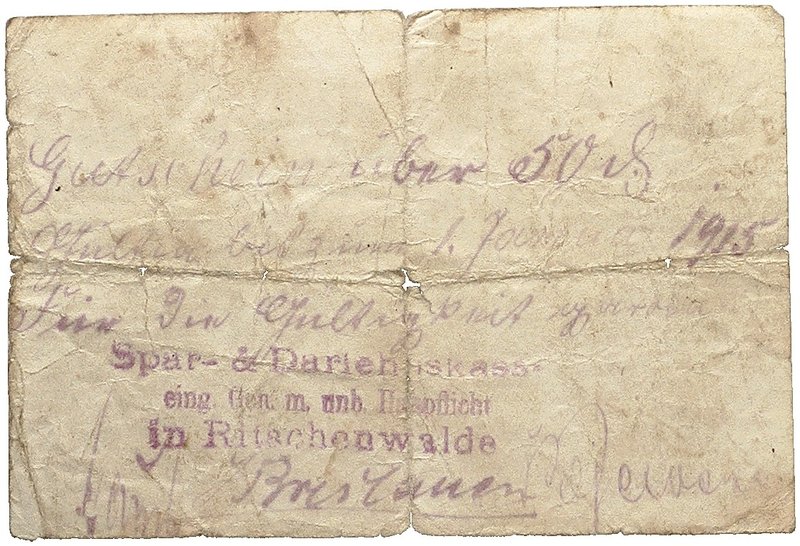 Gutschein über 50 ₰
Gültig bis zum 1. Januar 1915
Für die Gültigkeit
Spar- & Darlehnskasse
eing. Gen. m. unb. Haftpflicht
in Ritschenwalde
Breslauer